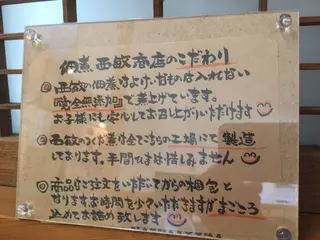 佃煮 西敏商店のこだわり
◎ 西敏の佃煮は、よけいなものは入れない
『完全無添加』で煮上げています。
お子様にも安心してお召し上がりいただけます
◎ 西敏のつくだ煮は全てこちらの工場にて製造
しております。手間ひまは惜しみません
◎ 商品はご注文をいただいてからの梱包と
なります。お時間を少々いただきますがまごころ
込めてお詰め致します